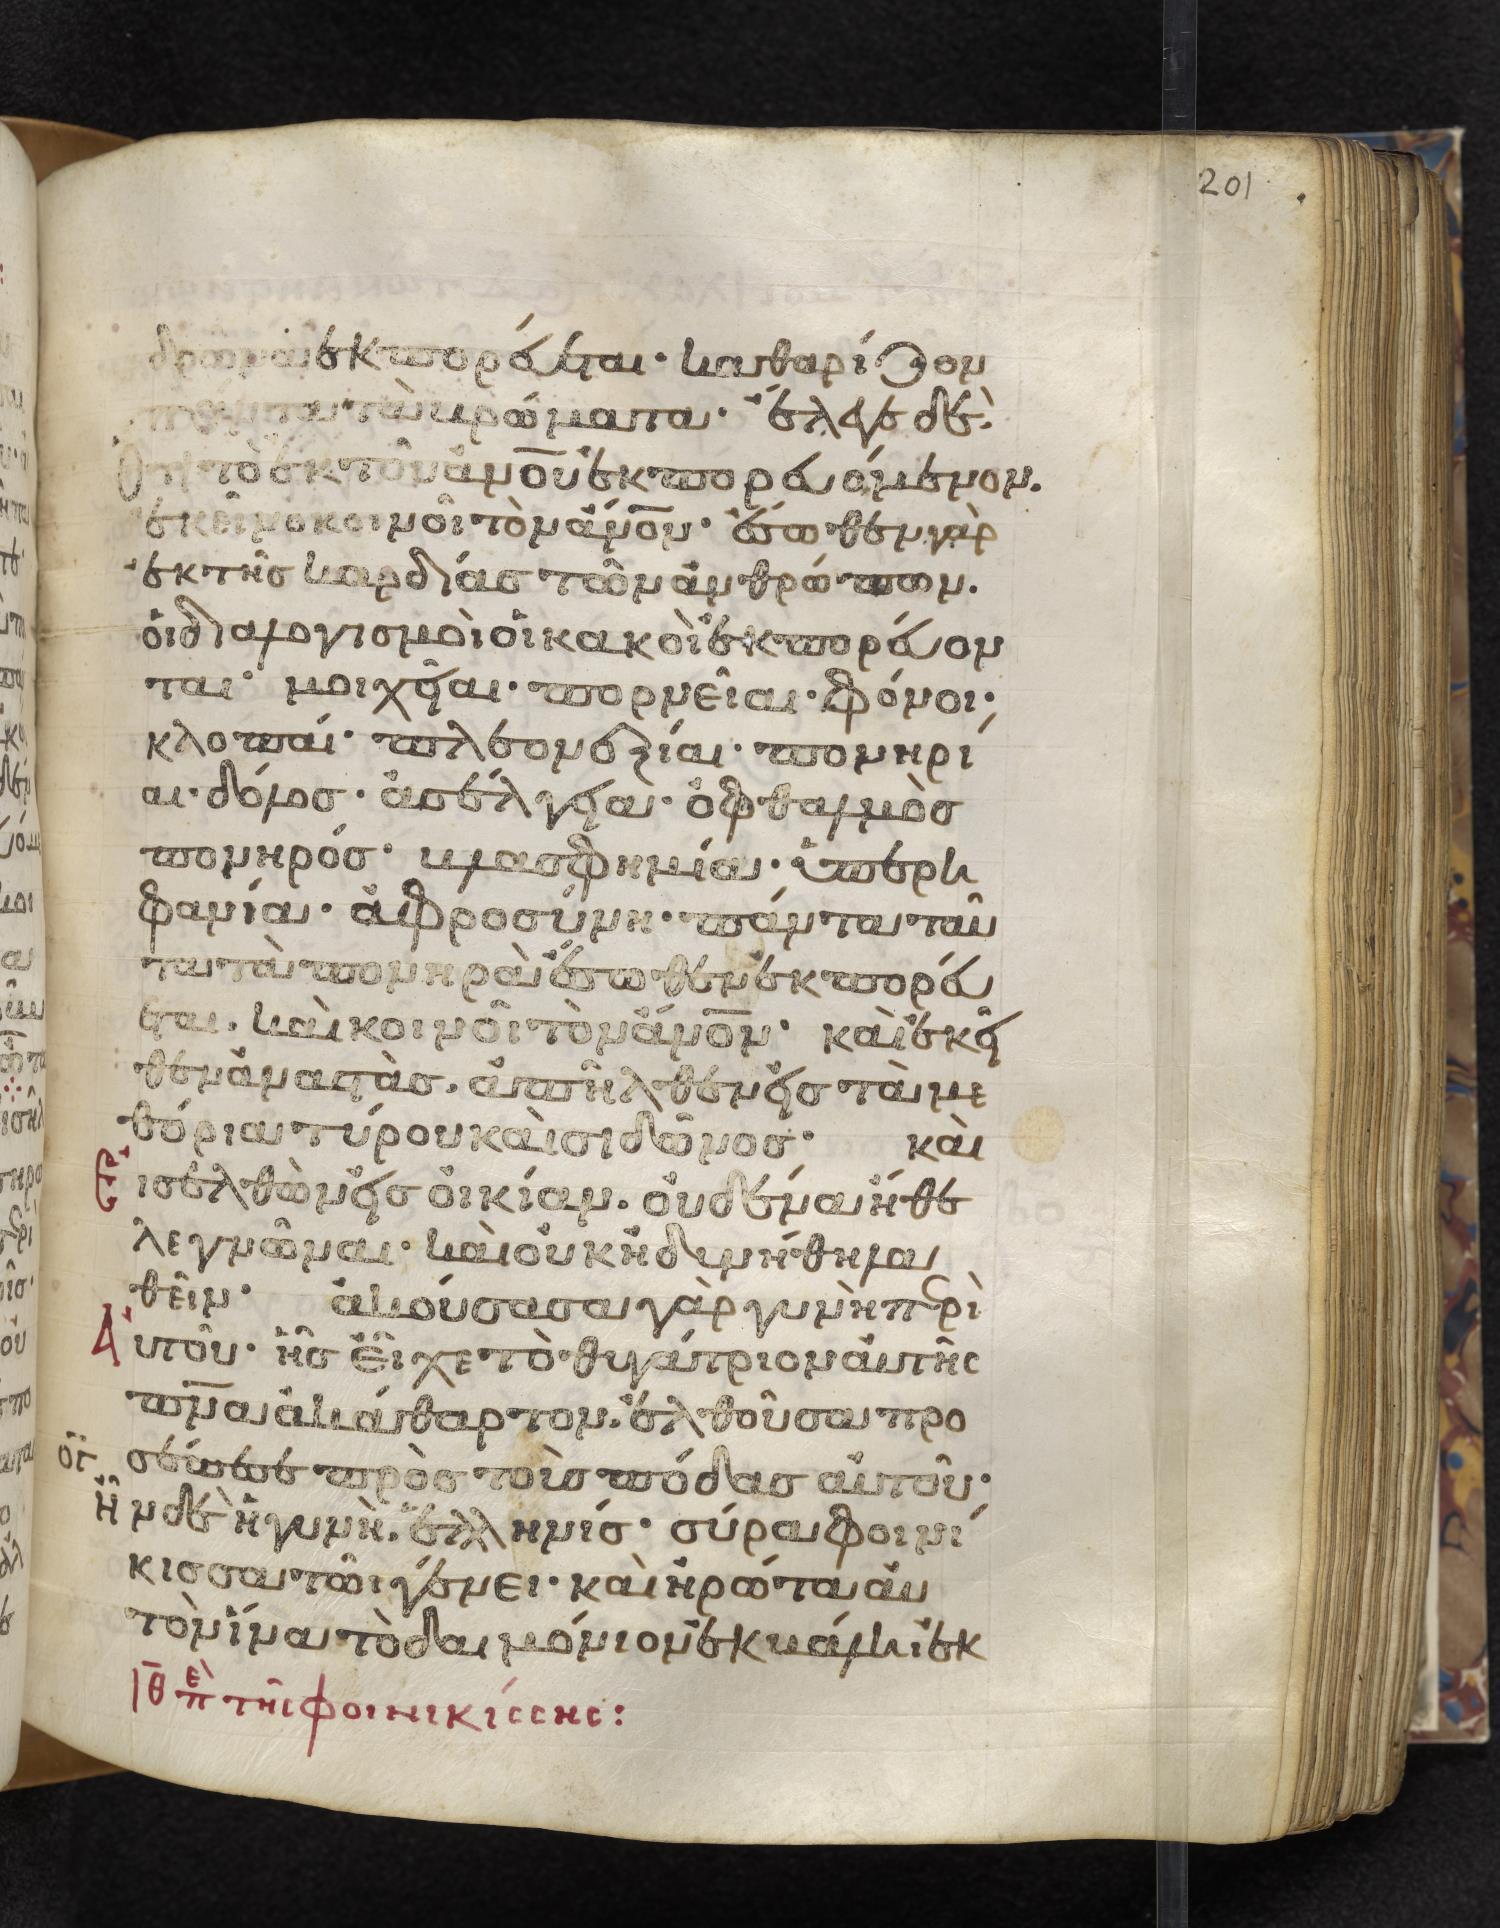 201
δρῶνα ἐκπορεύεται· καθαρίζον
πάντα τὰ βρώματα· ἔλεγε δὲ·
ὅτι τὸ ἐκ τοῦ ἀνοῦ ἐκπορευόμενον.
ἐκεῖνο κοινοῖ τὸν ἄνον· ἔσωθεν γὰρ
ἐκ τῆς καρδίας τῶν ἀνθρώπων.
οἱ διαλογισμοὶ οἱ κακοὶ ἐκπορεύον
ται· μοιχεῖαι· πορνεῖαι· φόνοι·
κλοπαί· πλεονεξίαι· πονηρί
αι· δόλος· ἀσέλγεια· ὀφθαλμὸς
πονηρός· βλασφημία· ὑπερη
φανία· ἀφροσύνη· πάντα ταῦ
τα τὰ πονηρὰ ἔσωθεν ἐκπορεύ
εται. καὶ κοινοῖ τὸν ἄνον· καὶ ἐκεῖ
θεν ἀναστὰς. ἀπῆλθεν εἰς τὰ με
θόρια τύρου καὶ σιδῶνος· καὶ
ἰσελθὼν εἰς οἰκίαν. οὐδένα ἤθε
λε γνῶναι· καὶ οὐκ ἠδυνήθη λα
θεῖν· ἀκούσασα γὰρ γυνὴ περὶ
Αὐτοῦ· ἧς εἶχε τὸ θυγάτριον αὐτῆς
πνα ἀκάθαρτον. ἐλθοῦσα προ
σέπεσε πρὸς τοὺς πόδας αὐτοῦ·
ἦν δὲ ἡ γυνὴ. ἑλληνίς· σύρα φοινί
κισσα τῶι γένει· καὶ ἠρώτα αὐ
τὸν ἵνα τὸ δαιμόνιον ἐκβάλη ἐκ
ιθ ἐπ τῆς φοινικίσσης: